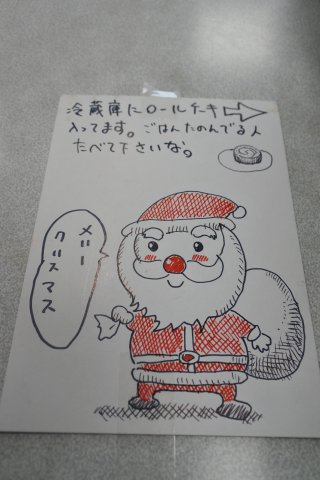 冷蔵庫にロールケーキ
入ってます。ごはんたのんでる人
たべて下さいな。
メリー
クリスマス